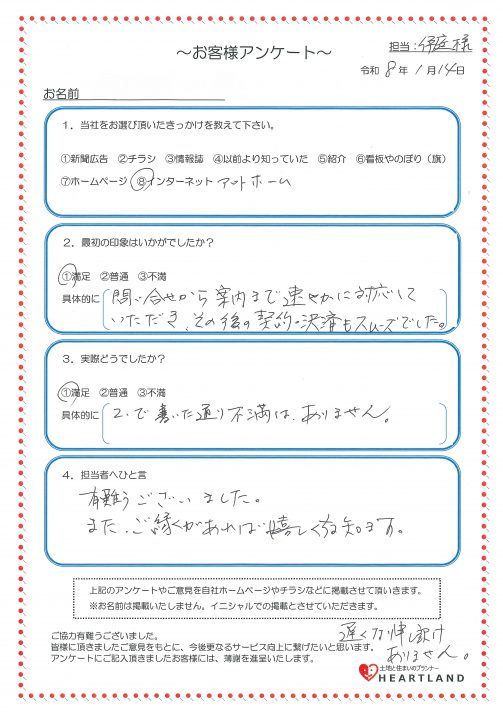 ～お客様アンケート～
担当：伊庭様
令和 8 年 1 月 14日
お名前
1．当社をお選び頂いたきっかけを教えて下さい。
①新聞広告 ②チラシ ③情報誌 ④以前より知っていた ⑤紹介 ⑥看板やのぼり（旗）
⑦ホームページ ⑧インターネット アットホーム
2．最初の印象はいかがでしたか？
①満足 ②普通 ③不満
具体的に 問い合せから案内まで速やかに対応して
いただき、その後の契約・決済もスムーズでした。
3．実際どうでしたか？
①満足 ②普通 ③不満
具体的に 2.で書いた通り不満は、ありません。
4．担当者へひと言
有難うございました。
また、ご縁があれば嬉しく
上記のアンケートやご意見を自社ホームページやチラシなどに掲載させて頂いきます。
※お名前は掲載いたしません。イニシャルでの掲載とさせていただきます。
ご協力有難うございました。
皆様に頂きましたご意見をもとに、今後更なるサービス向上に繋げたいと思います。
アンケートにご記入頂きましたお客様には、薄謝を進呈いたします。
遅くなり申し訳け
ありません。
土地と住まいのプランナー
HEARTLAND